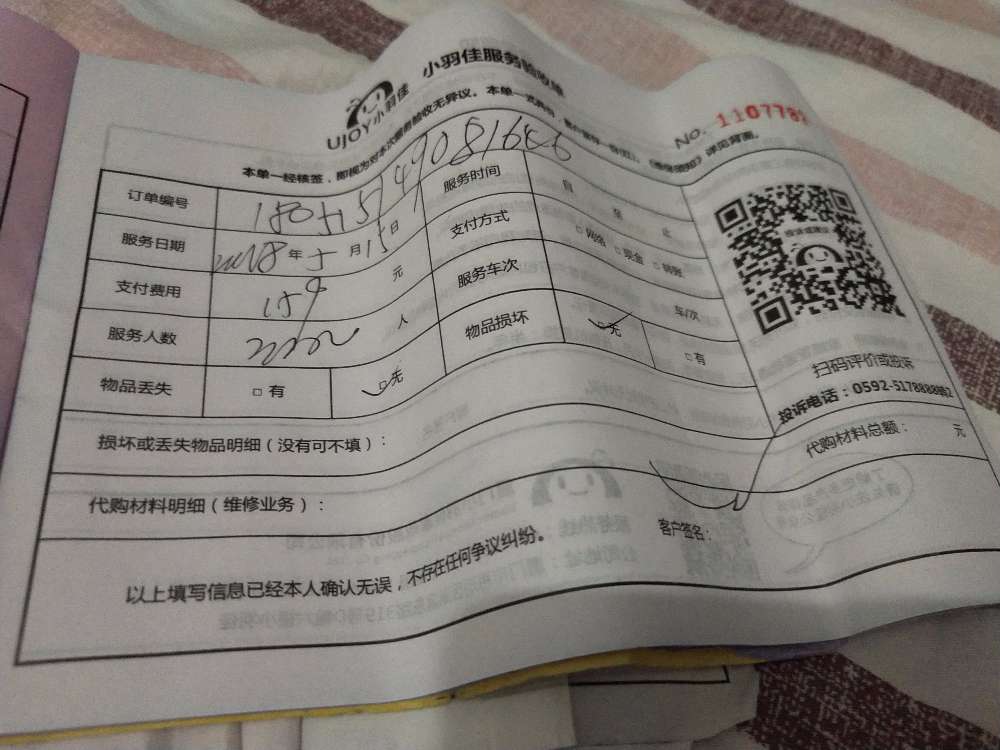 UJOY小羽佳 小羽佳服务验收单
No. 1107782
本单一经核签，即视为对本次服务验收无异议。本单一式两份，《服务须知》详见背面。
订单编号 服务时间 自 至 止
服务日期 2018年5月15日 支付方式 □网络 □现金 □转账
支付费用 159 元 服务车次 车/次
服务人数 人 物品损坏 □无 □有
物品丢失 □有 □无
扫码评价或投诉
投诉电话：0592-5178888转2
损坏或丢失物品明细（没有可不填）：
代购材料明细（维修业务）： 代购材料总额： 元
以上填写信息已经本人确认无误，不存在任何争议纠纷。 客户签名：